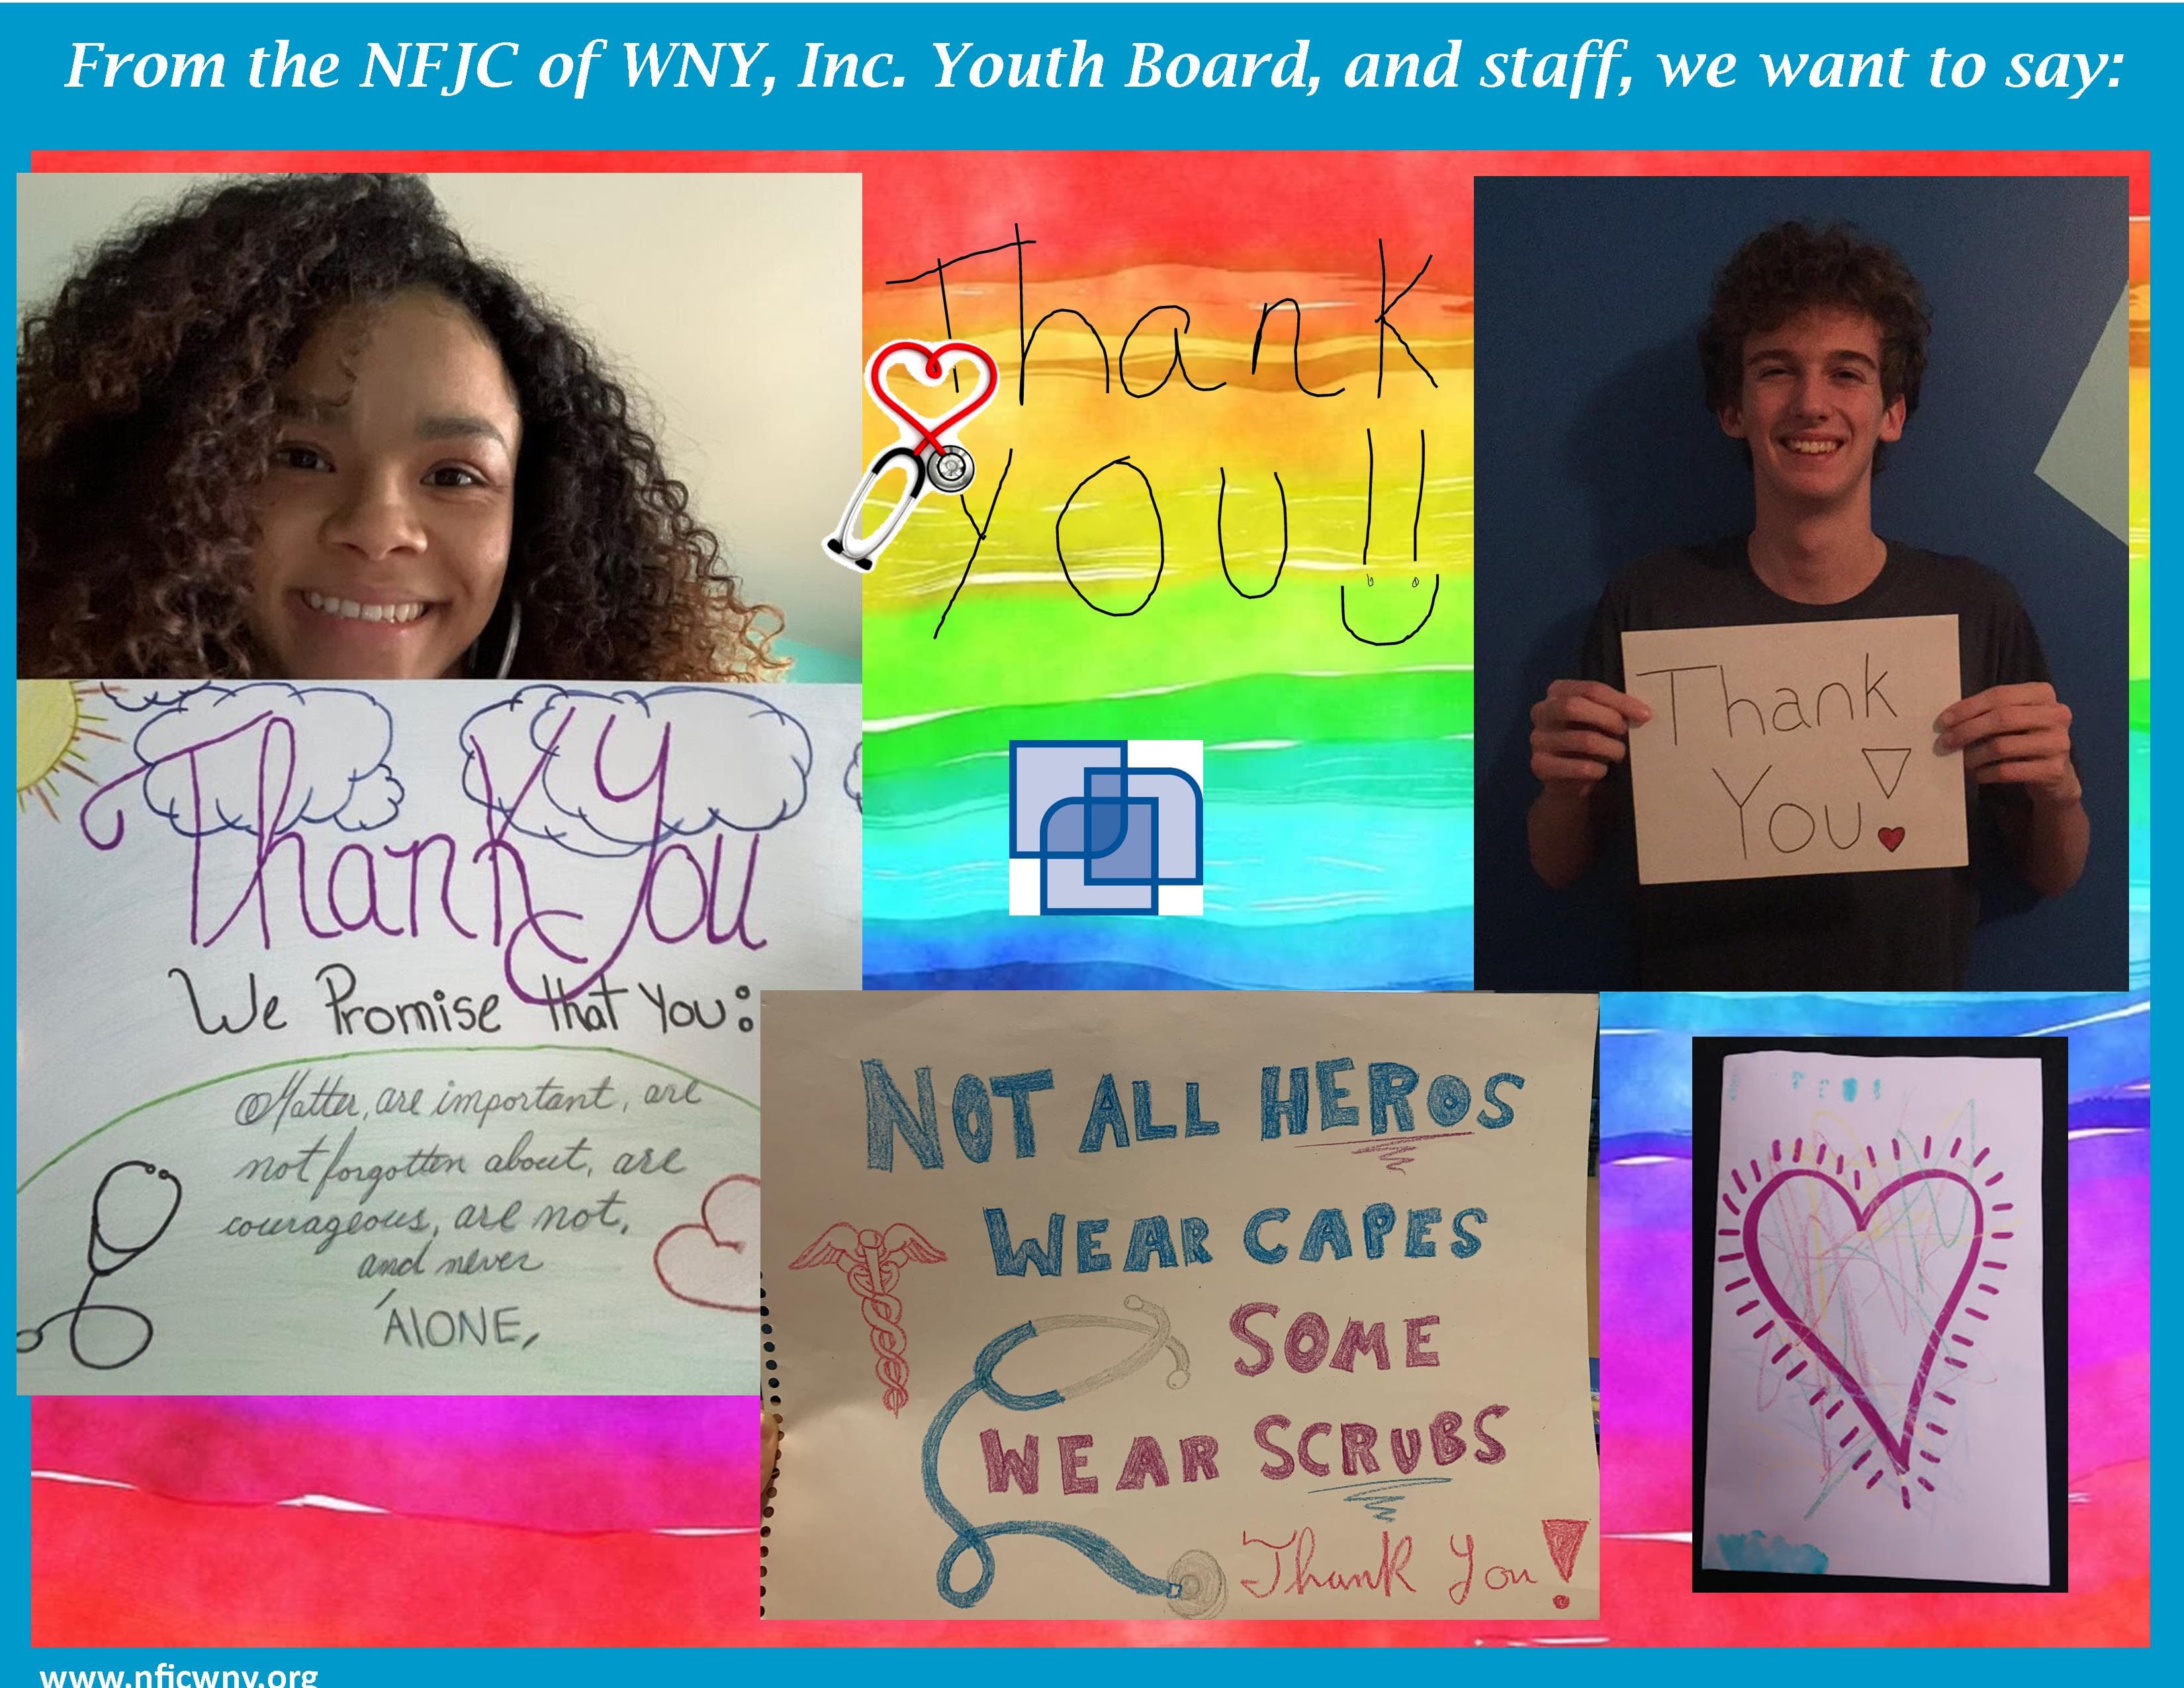 From the NFJC of WNY, Inc. Youth Board, and staff, we want to say:
Thank
You!!
Thank
You!
Thank You
We Promise that You:
Matter, are important, are
not forgotten about, are
courageous, are not,
and never
AlONE,
NOT ALL HEROS
WEAR CAPES
SOME
WEAR SCRUBS
Thank You!
www.nfjcwny.org